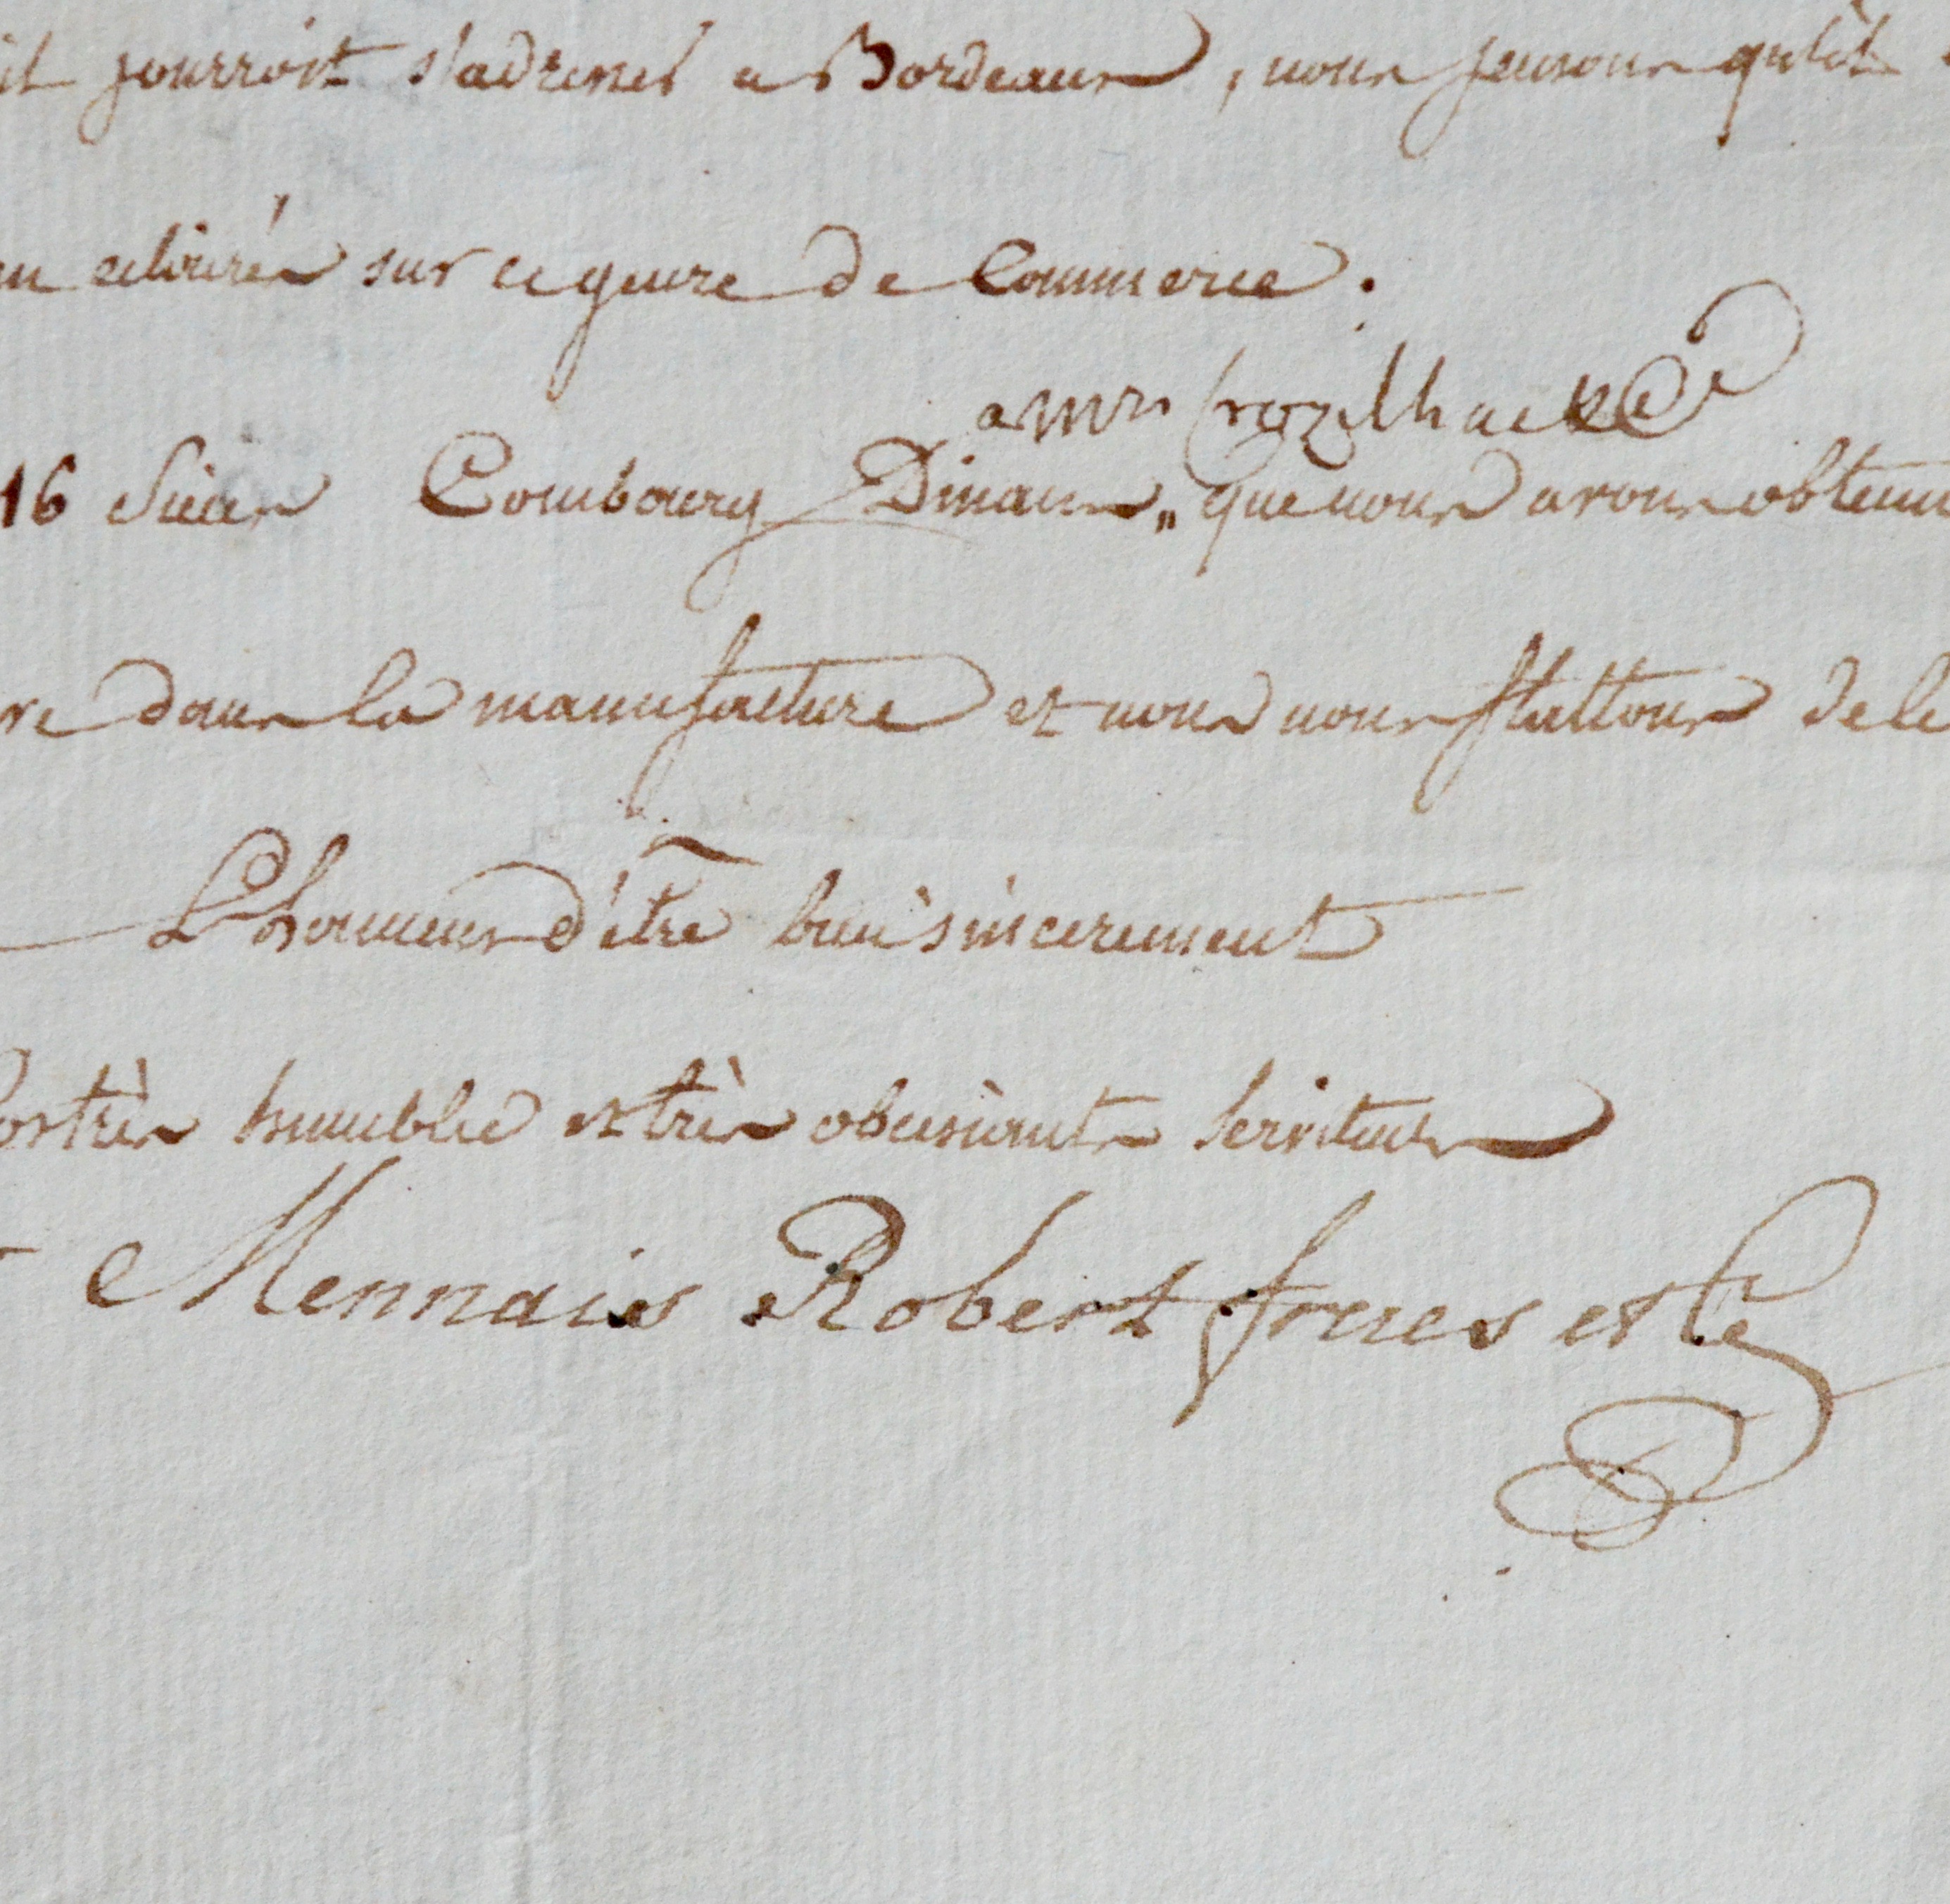 it pourroit s'adresser a Bordeaux, nous pensons qu'il
sur ce genre de Commerce.
a Mrs
16 Pièces Combourg Dinans „ que nous avons obtenu
re dans la manufacture et nous nous flattons de le
L'honneur d'être bien sincerement
Vos très humbles et très obeissants Serviteurs
Mennais Robert freres et Ce